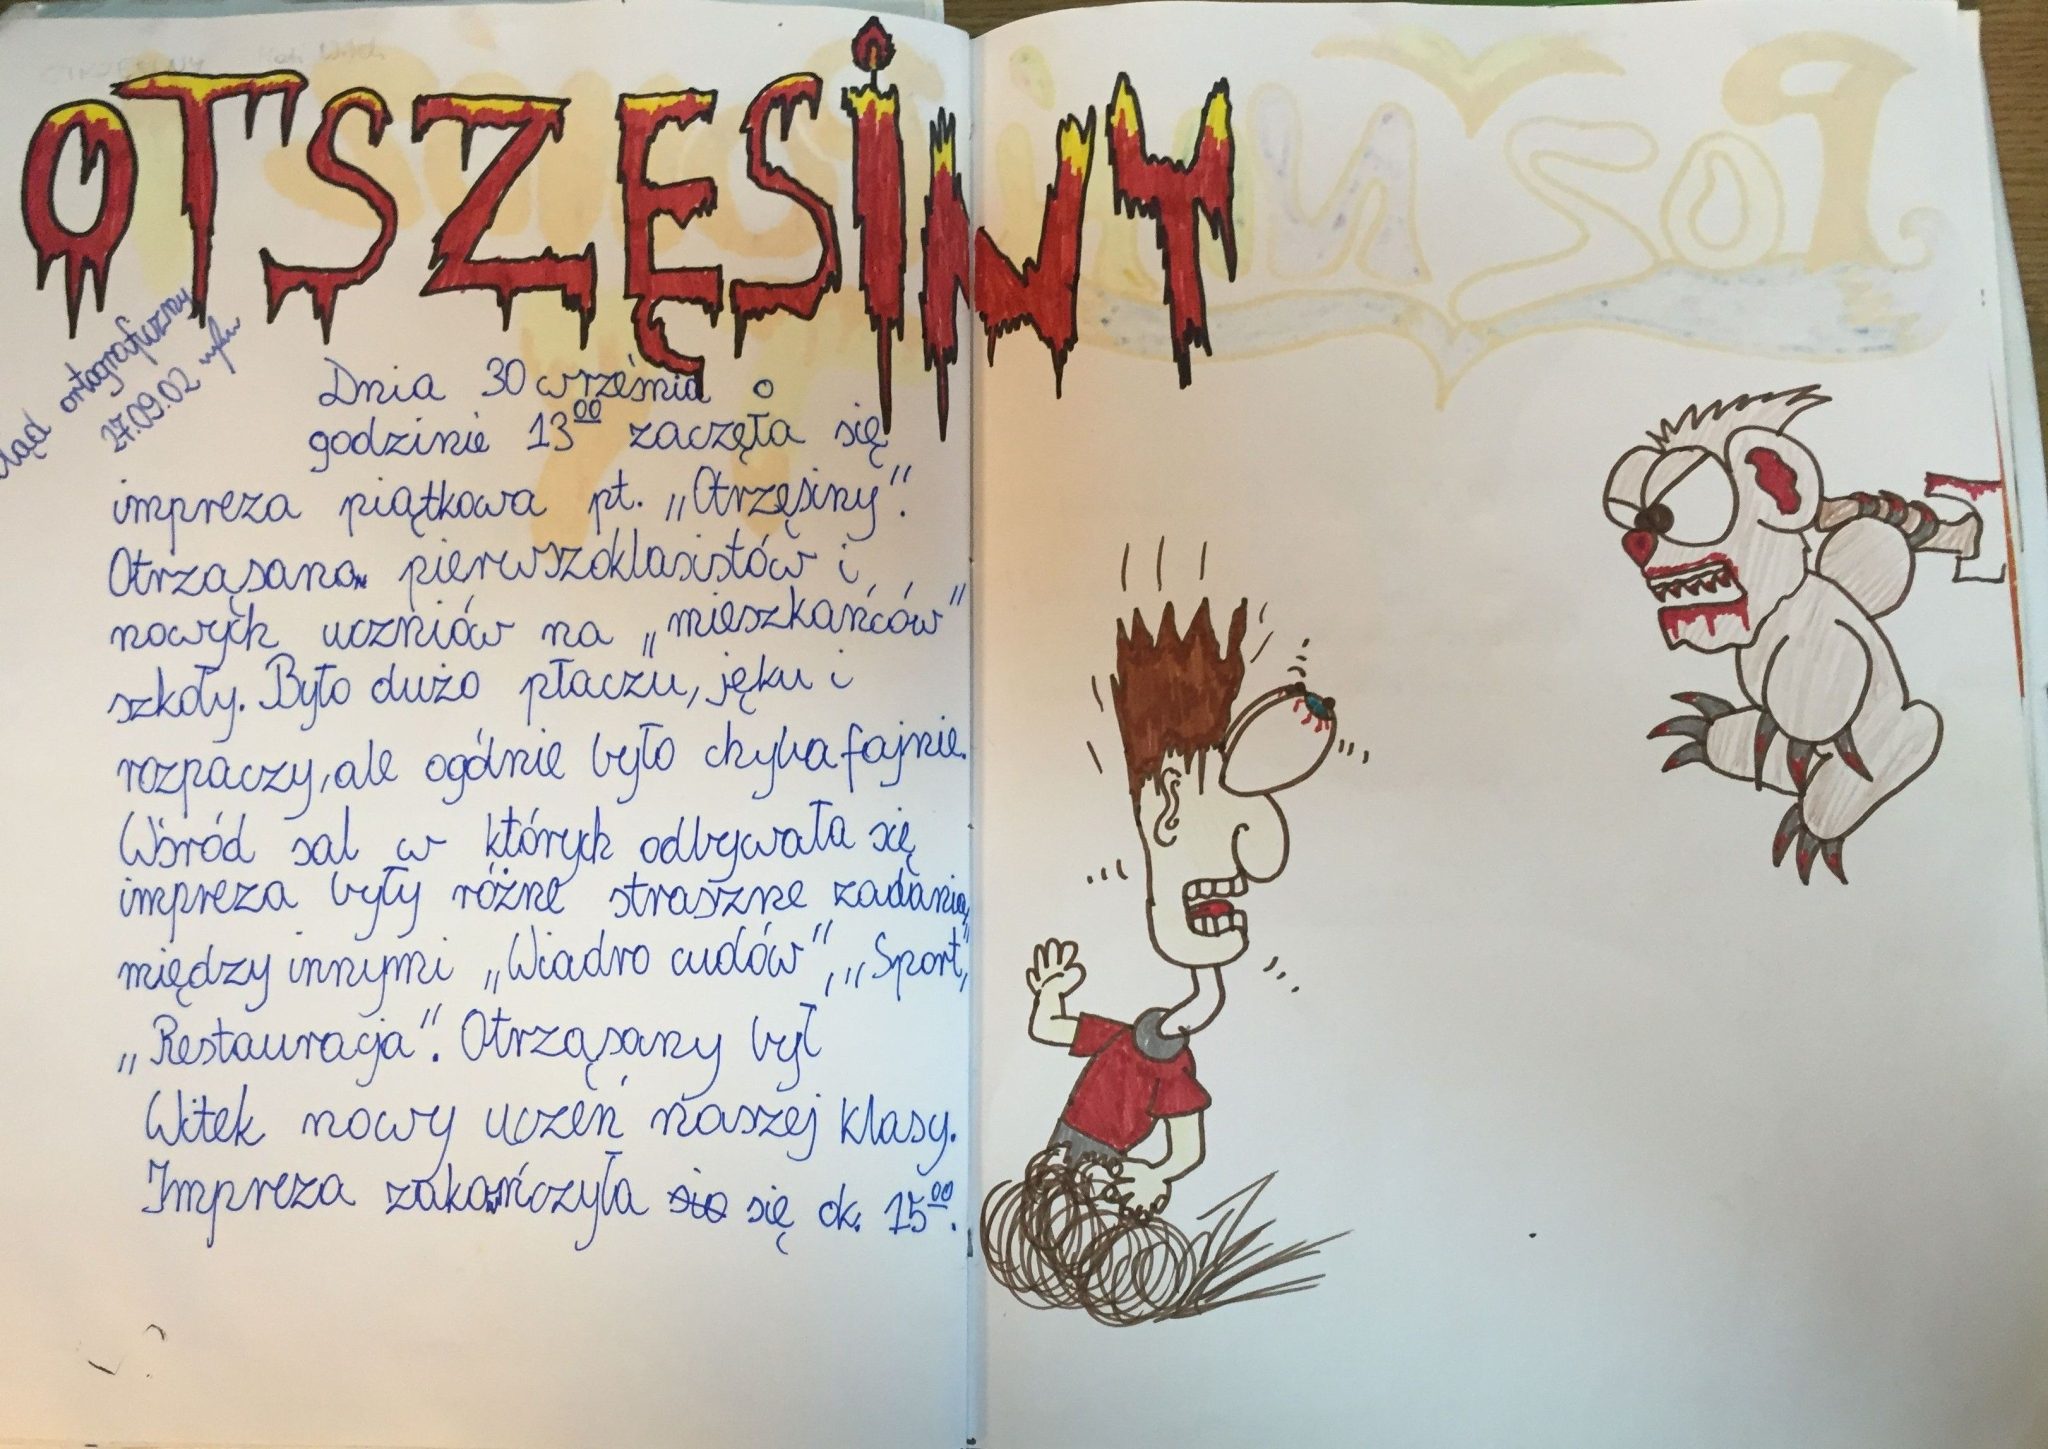 OTSZĘSINY
ortograficzny
27.09.02
Dnia 30 wrzęśnia o
godzinie 13⁰⁰ zaczęła się
impreza piątkowa pt. „Otrzęsiny".
Otrząsano pierwszoklasistów i
nowych uczniów na „mieszkańców"
szkoły. Było dużo płaczu, jęku i
rozpaczy, ale ogólnie było chyba fajnie.
Wśród sal w których odbywała się
impreza były różne straszne zadania,
między innymi „Wiadro cudów", „Sport",
„Restauracja". Otrząsany był
Witek nowy uczeń naszej klasy.
Impreza zakończyła się ok. 15⁰⁰.